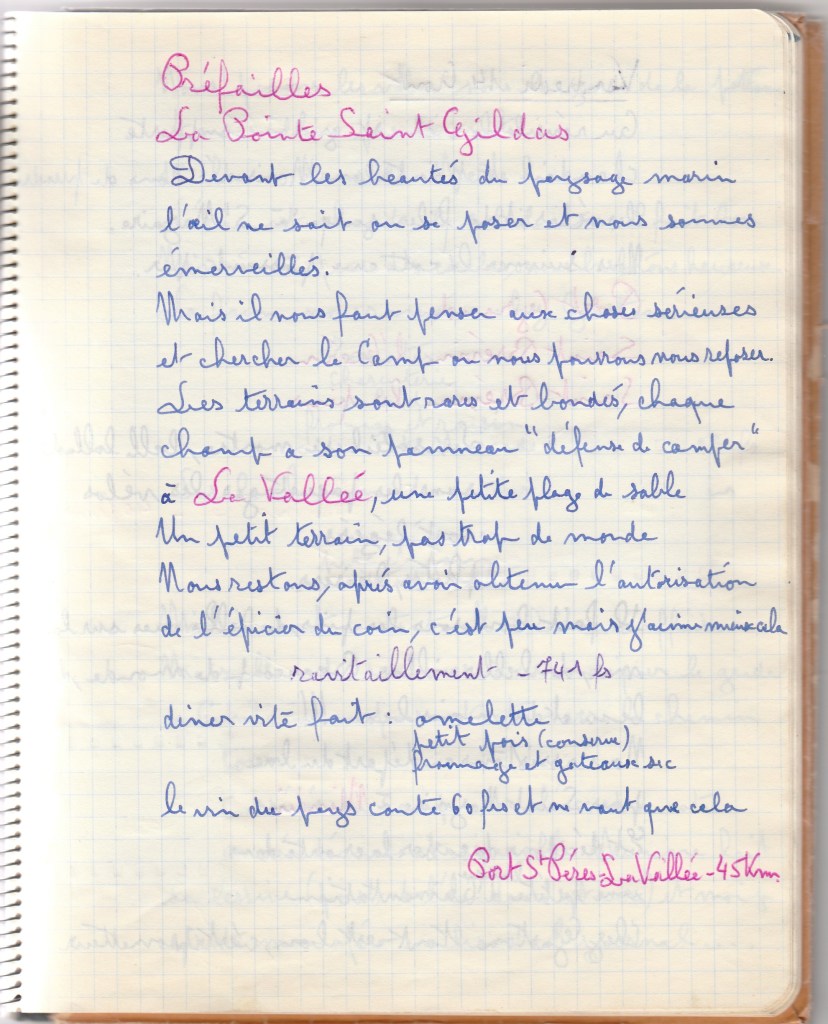 Préfailles
La Pointe Saint Gildas
Devant les beautés du paysage marin
l'œil ne sait ou se poser et nous sommes
émerveillés.
Mais il nous faut penser aux choses sérieuses
et chercher le Camp ou nous pourrons nous reposer.
Les terrains sont rares et bondés, chaque
champ a son panneau "défense de camper"
à La Vallée, une petite plage de sable
Un petit terrain, pas trop de monde
Nous restons, aprés avoir obtenu l'autorisation
de l'épicier du coin, c'est peu mais j'aime mieux cela
ravitaillement - 741 fs
diner vite fait : omelette
petit pois (conserve)
frommage et gateaux sec
le vin du pays coute 60 frs et ne vaut que cela
Port St Péres - La Vallée - 45 Km.